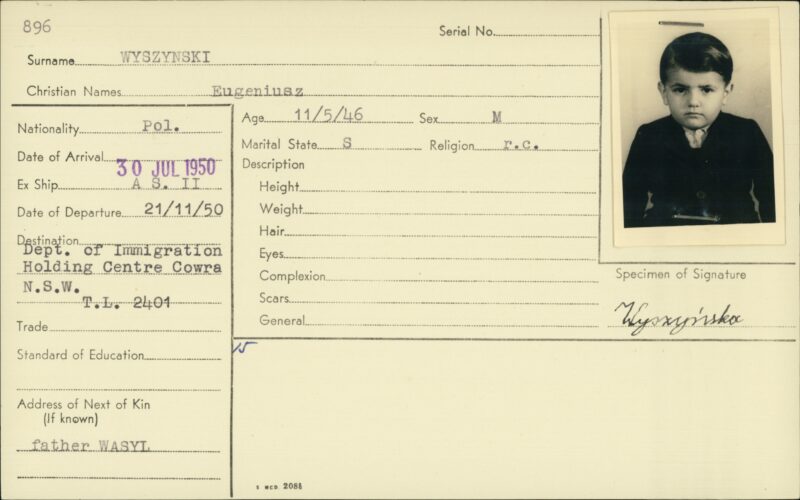 896
Serial No.
Surname WYSZYNSKI
Christian Names Eugeniusz
Nationality Pol.
Date of Arrival 30 JUL 1950
Ex Ship A S. II
Date of Departure 21/11/50
Destination
Dept. of Immigration
Holding Centre Cowra
N.S.W.
T.L. 2401
Trade
Standard of Education
Address of Next of Kin
(If known)
father WASYL
Age 11/5/46 Sex M
Marital State S Religion r.c.
Description
Height
Weight
Hair
Eyes
Complexion
Scars
General
15
Specimen of Signature
Wyszyńska
S WCD. 2088